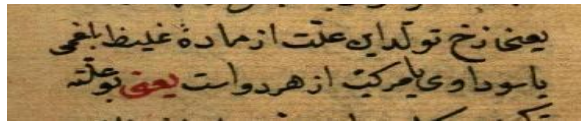 یعنی زخ تولد این علت از ماده غلیظ بلغمی
یا سوداوی یا مرکب از هر دو است یعنی بوعلته